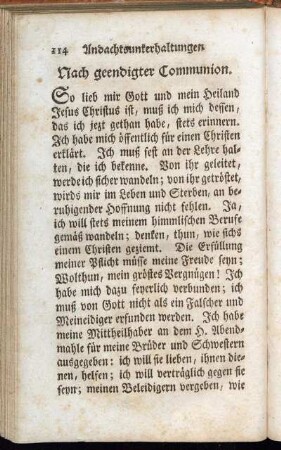 114 Andachtsunterhaltungen
Nach geendigter Communion.
So lieb mir Gott und mein Heiland
Jesus Christus ist, muß ich mich dessen,
das ich jezt gethan habe, stets erinnern.
Ich habe mich öffentlich für einen Christen
erklärt. Ich muß fest an der Lehre hal-
ten, die ich bekenne. Von ihr geleitet,
werde ich sicher wandeln; von ihr getröstet,
wirds mir im Leben und Sterben, an be-
ruhigender Hoffnung nicht fehlen. Ja,
ich will stets meinem himmlischen Berufe
gemäß wandeln; denken, thun, wie sichs
einem Christen geziemt. Die Erfüllung
meiner Pflicht müsse meine Freude seyn;
Wolthun, mein gröstes Vergnügen! Ich
habe mich dazu feyerlich verbunden; ich
muß von Gott nicht als ein Falscher und
Meineidiger erfunden werden. Ich habe
meine Mittheilhaber an dem H. Abend-
mahle für meine Brüder und Schwestern
ausgegeben: ich will sie lieben, ihnen die-
nen, helfen; ich will verträglich gegen sie
seyn; meinen Beleidigern vergeben, wie